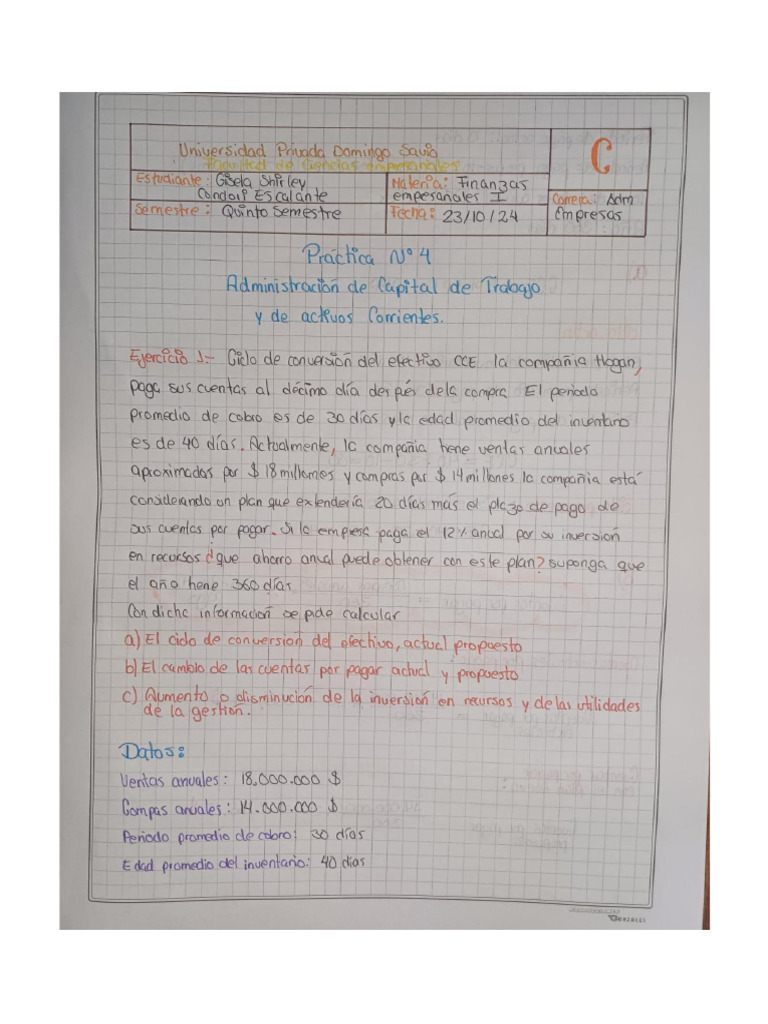 Universidad Privada Domingo Savio
Facultad de Ciencias empresariales
C
Estudiante: Gisela Shirley
Condori Escalante
Materia: Finanzas
empesariales I
Carrera: Adm.
Empresas
Semestre: Quinto Semestre
Fecha: 23/10/24
Práctica N° 4
Administración de Capital de Trabajo
y de activos Corrientes.
Ejercicio 1:- Ciclo de conversión del efectivo CCE la compañia Hogan,
paga sus cuentas al décimo día des pés de la compra. El periodo
promedio de cobro es de 30 días y la edad promedio del inventario
es de 40 días. Actualmente, la compañia tiene ventas anuales
aproximadas por $ 18 millomes y compras por $ 14 millones la compañia está
considerando un plan que extendería 20 días más el plazo de pago de
sus cuentas por pagar. Si la empresa paga el 12% anual por su inversión
en recursos ¿que ahorro anual puede obtener con este plan? suponga que
el año tiene 360 días
Con dicha información se pide calcular
a) El ciclo de conversión del efectivo, actual propuesto
b) El cambio de las cuentas por pagar actual y propuesto
c) Aumento o disminución de la inversión en recursos y de las utilidades
de la gestión.
Datos:
Ventas anuales: 18.000.000 $
Compas anuales: 14.000.000 $
Periodo promedio de cobro: 30 días
Edad promedio del inventario: 40 dias